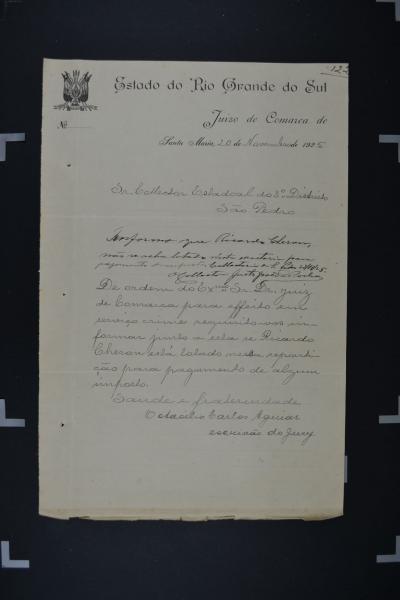 122
Estado do Rio Grande do Sul
Juizo de Comarca de
Nº
Santa Maria, 20 de Novembro de 1925
Sr. Collector Estadoal do 3º Districto
São Pedro
Informo que Ricardo Cheron,
não se acha lotado nesta exactoria para
pagamento de imposto. Collectoria de S. Pedro
O Collector
De ordem do Exmo Sr. Dr. Juiz
de Comarca para effeito em
serviço crimes requisito-vos in-
formar junto a esta se Ricardo
Cheron está lotado nessa reparti-
ção para pagamento de algum
imposto.
Saude e fraternidade
Octacilio Carlos Aguiar
escrivão do Jury